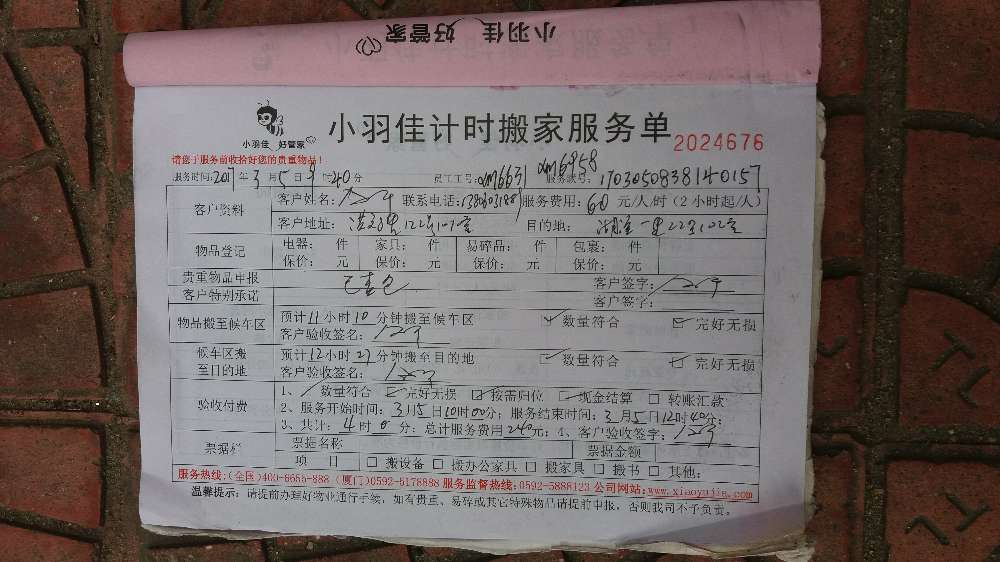 小羽佳 好管家
小羽佳 好管家
小羽佳计时搬家服务单 2024676
请您于服务前收拾好您的贵重物品!
服务时间:2017年3月5日9时40分 员工工号:xm6631 xm6958 服务账号:1703050838140157
客户资料
客户姓名: 联系电话: 服务费用:60元/人/时(2小时起/人)
客户地址: 目的地:
物品登记
电器: 件 家具: 件 易碎品: 件 包裹: 件
保价: 元 保价: 元 保价: 元 保价: 元
贵重物品申报 客户签字:
客户特别承诺 客户签字:
物品搬至候车区
预计11小时10分钟搬至候车区 数量符合 完好无损
客户验收签名:
候车区搬至目的地
预计12小时27分钟搬至目的地 数量符合 完好无损
客户验收签名:
验收付费
1、数量符合 完好无损 按需归位 现金结算 转账汇款
2、服务开始时间:3月5日10时00分;服务结束时间:3月5日12时40分;
3、共计:4时0分;总计服务费用240元;4、客户验收签字:
票据栏
票据名称 票据金额
项 目 搬设备 搬办公家具 搬家具 搬书 其他:
服务热线:(全国)400-6655-888 (厦门)0592-5178888 服务监督热线:0592-5888123 公司网站:www.xiaoyujia.com
温馨提示:请提前办理好物业通行手续,如有贵重、易碎或其它特殊物品请提前申报,否则我司不予负责。